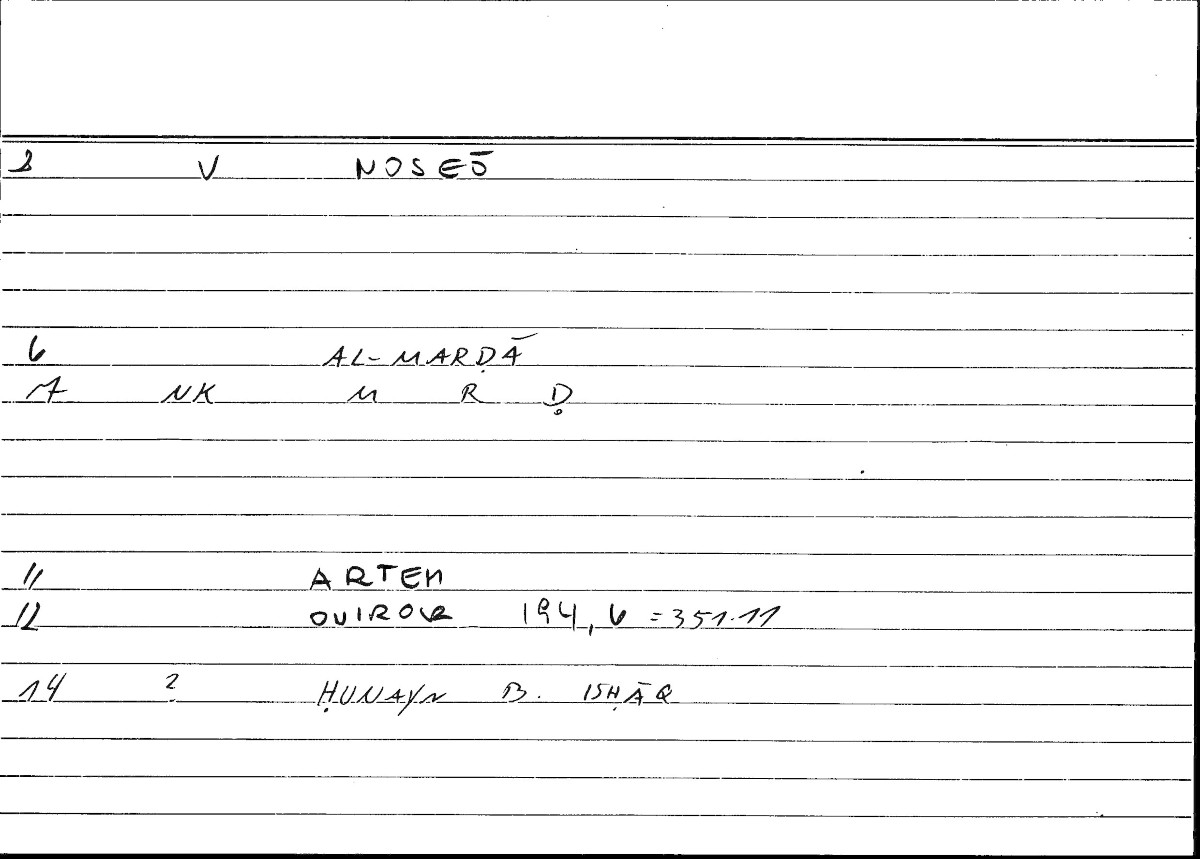 2 V NOSEŌ
6 AL-MARḌĀ
7 NK M R Ḍ
11 ARTEM
12 OVIROCR 194,6 = 351.11
14 2 ḤUNAYN B. ISḤĀQ